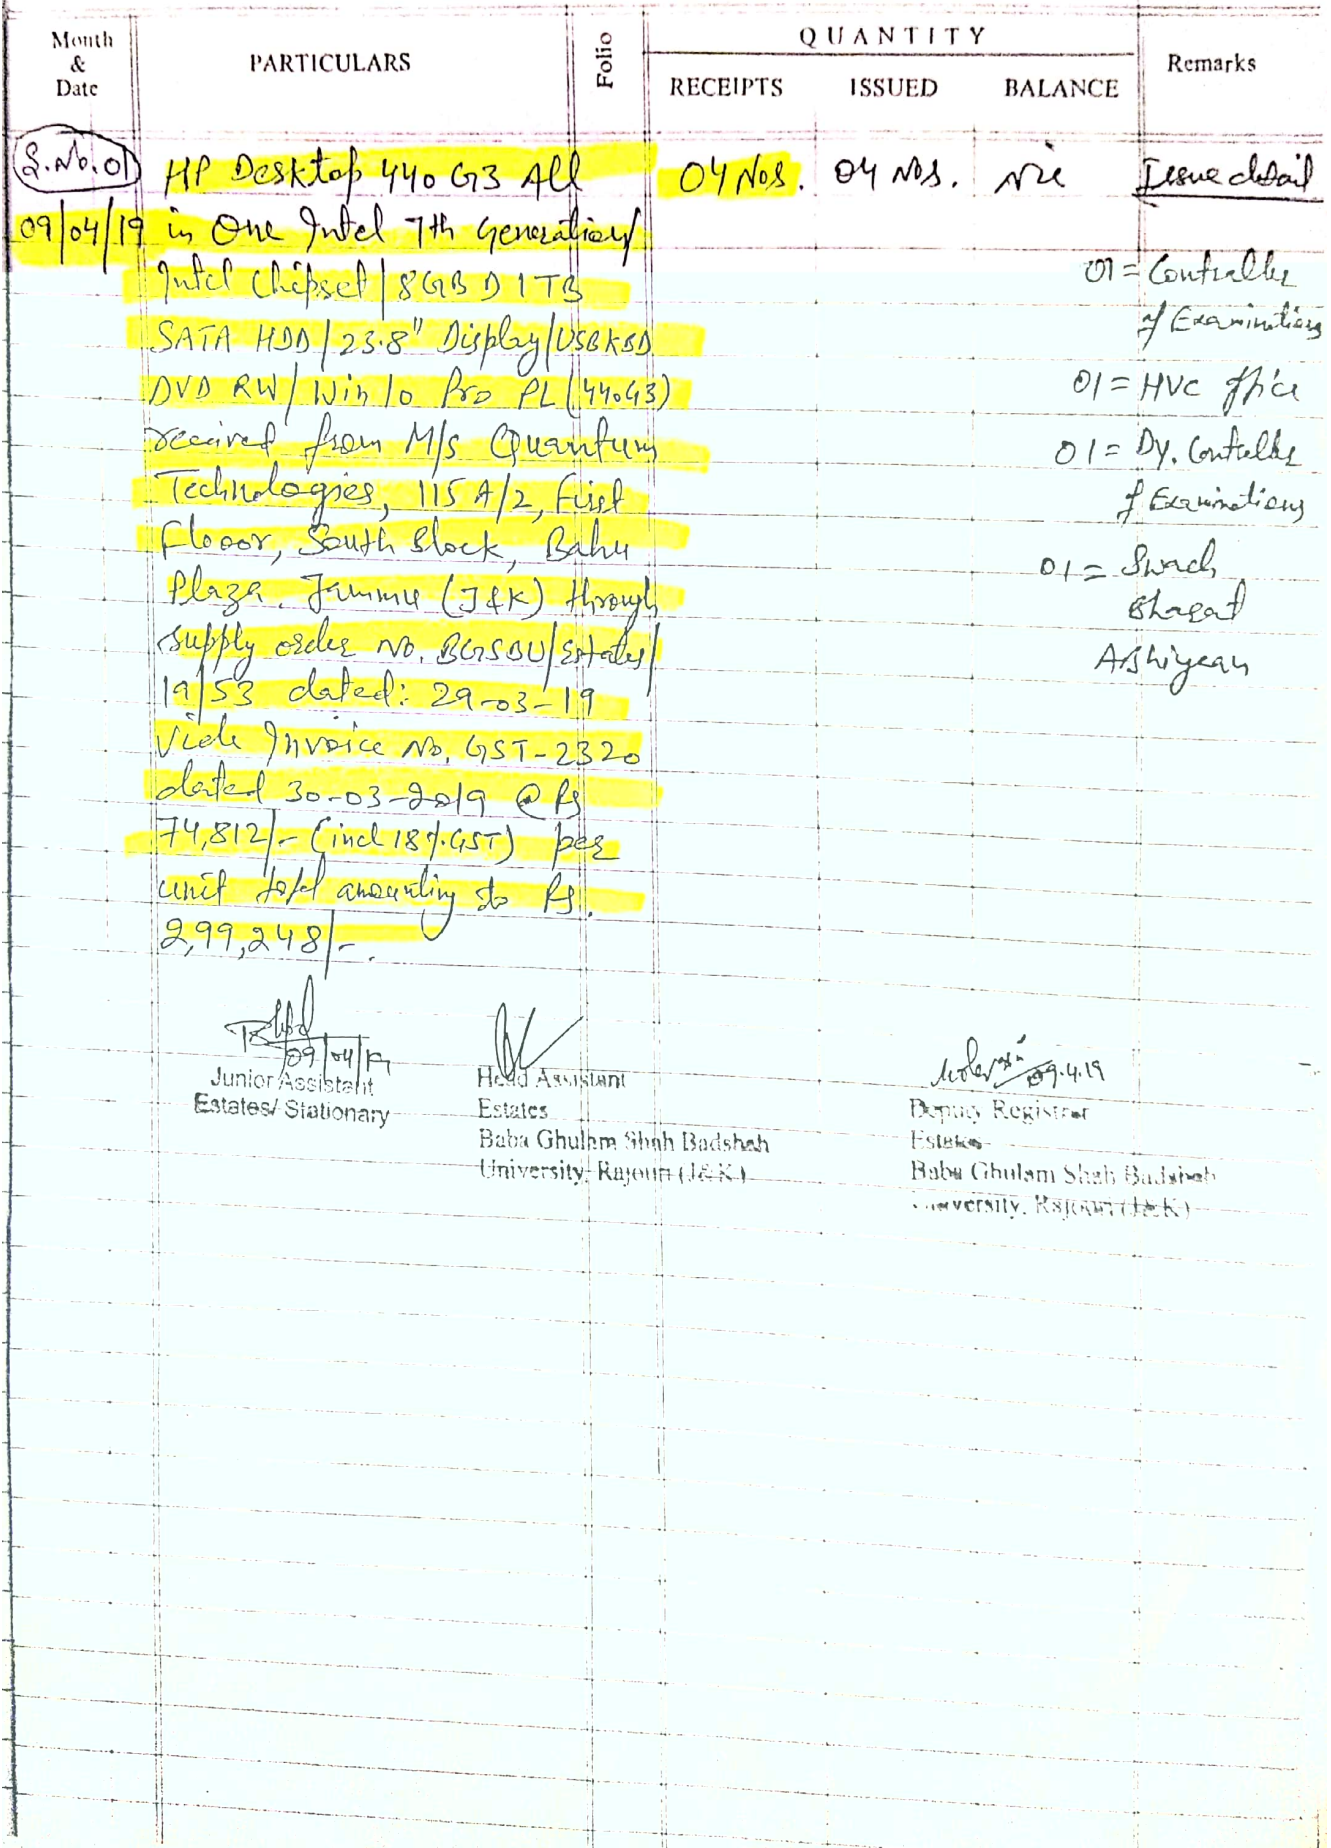 Month & Date
PARTICULARS
Folio
QUANTITY
RECEIPTS ISSUED BALANCE
Remarks
S.No.01 HP Desktop 440 G3 All 04 Nos. 04 Nos. Nil Issue detail
09/04/19 in One Intel 7th Generation/
Intel Chipset/8GB D 1TB
SATA HDD/23.8" Display/USBKBD
DVD RW/Win 10 Pro PL (440G3)
received from M/s Quantum
Technologies, 115 A/2, First
Flooor, South Block, Bahu
Plaza, Jammu (J&K) through
supply order No. BGSBU/Estates/
19/53 dated: 29-03-19
Vide Invoice No, GST-2320
dated 30-03-2019 @ Rs
74,812/- (incl 18% GST) per
unit total amounting to Rs.
2,99,248/-.
01 = Controller
of Examinations
01 = HVC Office
01 = Dy. Controller
of Examinations
01 = Swach
Bharat
Abhiyean
09/04/19
Junior Assistant
Estates/ Stationary
Head Assistant
Estates
Baba Ghulam Shah Badshah
University, Rajouri (J&K)
09.4.19
Deputy Registrar
Estates
Baba Ghulam Shah Badshah
University, Rajouri (J&K)